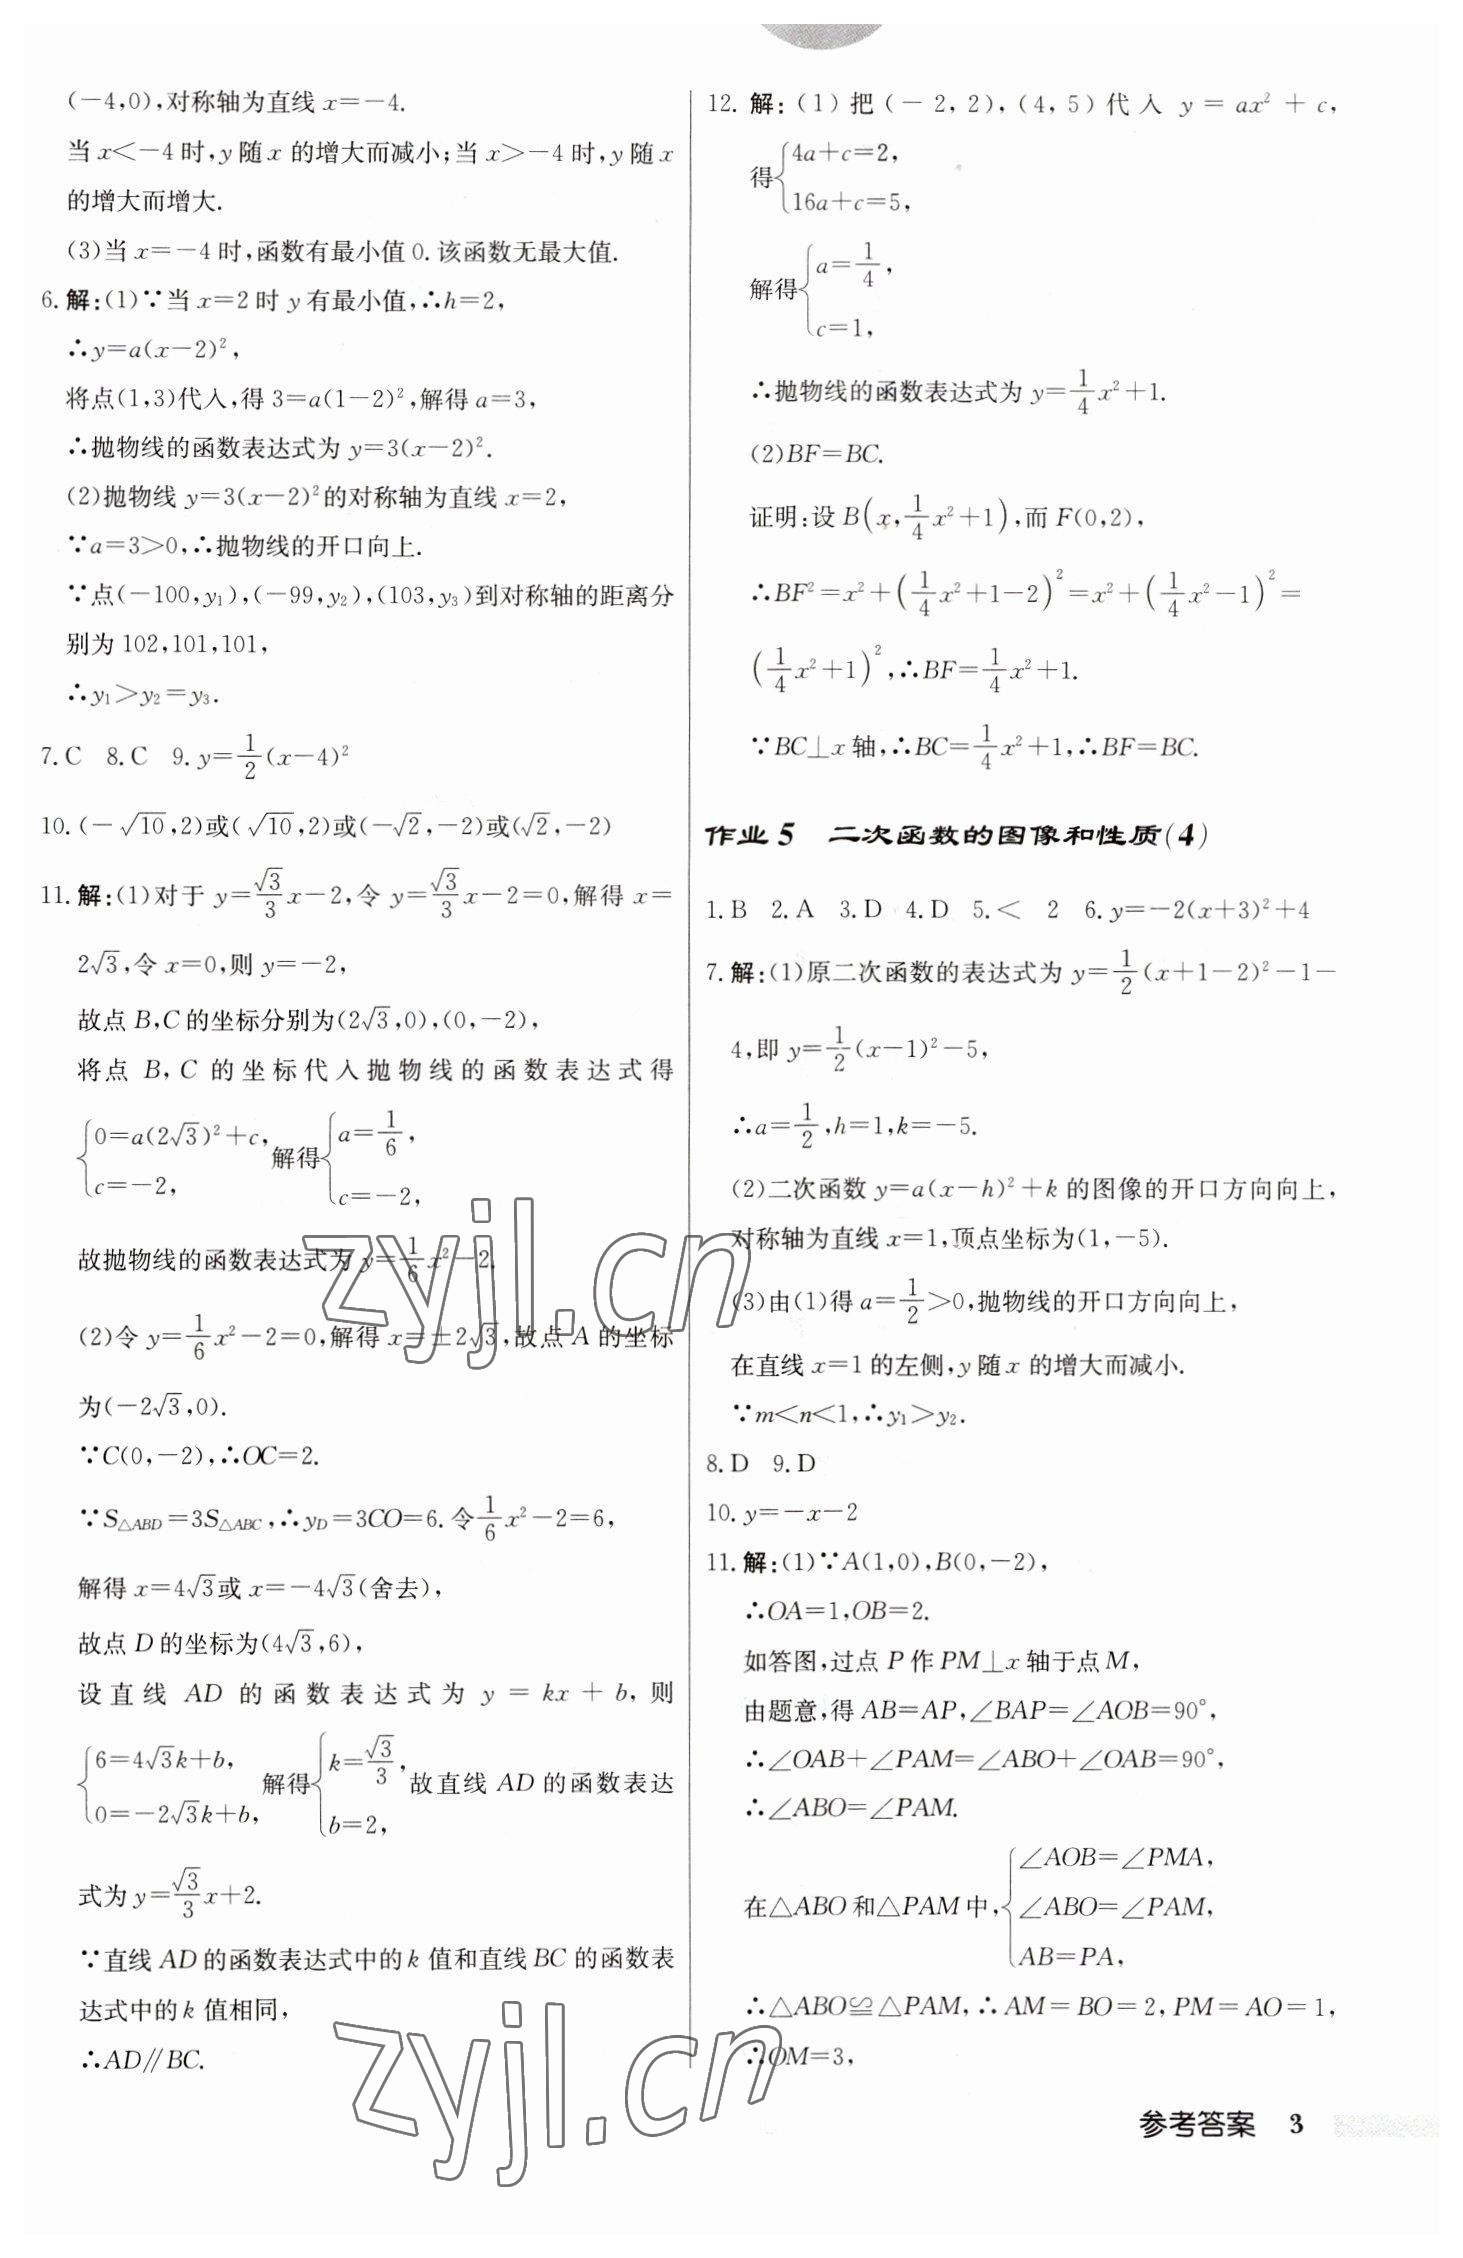 (−4,0),对称轴为直线 x=−4.
当 x<−4 时,y 随 x 的增大而减小;当 x>−4 时,y 随 x
的增大而增大.
(3)当 x=−4 时,函数有最小值 0. 该函数无最大值.
6. 解:(1)∵当 x=2 时 y 有最小值,∴h=2,
∴y=a(x−2)²,
将点(1,3)代入,得 3=a(1−2)²,解得 a=3,
∴抛物线的函数表达式为 y=3(x−2)².
(2)抛物线 y=3(x−2)²的对称轴为直线 x=2,
∵a=3>0,∴抛物线的开口向上.
∵点(−100,y₁),(−99,y₂),(103,y₃)到对称轴的距离分
别为 102,101,101,
∴y₁>y₂=y₃.
7. C 8. C 9. y=1/2(x−4)²
10. (−√10,2)或(√10,2)或(−√2,−2)或(√2,−2)
11. 解:(1)对于 y=√3/3 x−2,令 y=√3/3 x−2=0,解得 x=
2√3,令 x=0,则 y=−2,
故点 B,C 的坐标分别为(2√3,0),(0,−2),
将点 B,C 的坐标代入抛物线的函数表达式得
{0=a(2√3)²+c, c=−2, 解得{a=1/6, c=−2,
故抛物线的函数表达式为 y=1/6 x²−2.
(2)令 y=1/6 x²−2=0,解得 x=±2√3,故点 A 的坐标
为(−2√3,0).
∵C(0,−2),∴OC=2.
∵S△ABD=3S△ABC,∴y_D=3CO=6. 令 1/6 x²−2=6,
解得 x=4√3或 x=−4√3(舍去),
故点 D 的坐标为(4√3,6),
设直线 AD 的函数表达式为 y=kx+b,则
{6=4√3k+b, 0=−2√3k+b, 解得{k=√3/3, b=2, 故直线 AD 的函数表达
式为 y=√3/3 x+2.
∵直线 AD 的函数表达式中的 k 值和直线 BC 的函数表
达式中的 k 值相同,
∴AD∥BC.
12. 解:(1)把(−2,2),(4,5)代入 y=ax²+c,
得{4a+c=2, 16a+c=5,
解得{a=1/4, c=1,
∴抛物线的函数表达式为 y=1/4 x²+1.
(2)BF=BC.
证明:设 B(x,1/4 x²+1),而 F(0,2),
∴BF²=x²+(1/4 x²+1−2)²=x²+(1/4 x²−1)²=
(1/4 x²+1)²,∴BF=1/4 x²+1.
∵BC⊥x 轴,∴BC=1/4 x²+1,∴BF=BC.
作业 5 二次函数的图像和性质(4)
1. B 2. A 3. D 4. D 5. < 2 6. y=−2(x+3)²+4
7. 解:(1)原二次函数的表达式为 y=1/2(x+1−2)²−1−
4,即 y=1/2(x−1)²−5,
∴a=1/2,h=1,k=−5.
(2)二次函数 y=a(x−h)²+k 的图像的开口方向向上,
对称轴为直线 x=1,顶点坐标为(1,−5).
(3)由(1)得 a=1/2>0,抛物线的开口方向向上,
在直线 x=1 的左侧,y 随 x 的增大而减小.
∵m<n<1,∴y₁>y₂.
8. D 9. D
10. y=−x−2
11. 解:(1)∵A(1,0),B(0,−2),
∴OA=1,OB=2.
如答图,过点 P 作 PM⊥x 轴于点 M,
由题意,得 AB=AP,∠BAP=∠AOB=90°,
∴∠OAB+∠PAM=∠ABO+∠OAB=90°,
∴∠ABO=∠PAM.
在△ABO 和△PAM 中,{∠AOB=∠PMA, ∠ABO=∠PAM, AB=PA,
∴△ABO≌△PAM,∴AM=BO=2,PM=AO=1,
∴OM=3,
参考答案 3
zyjl.cn
zyjl.cn